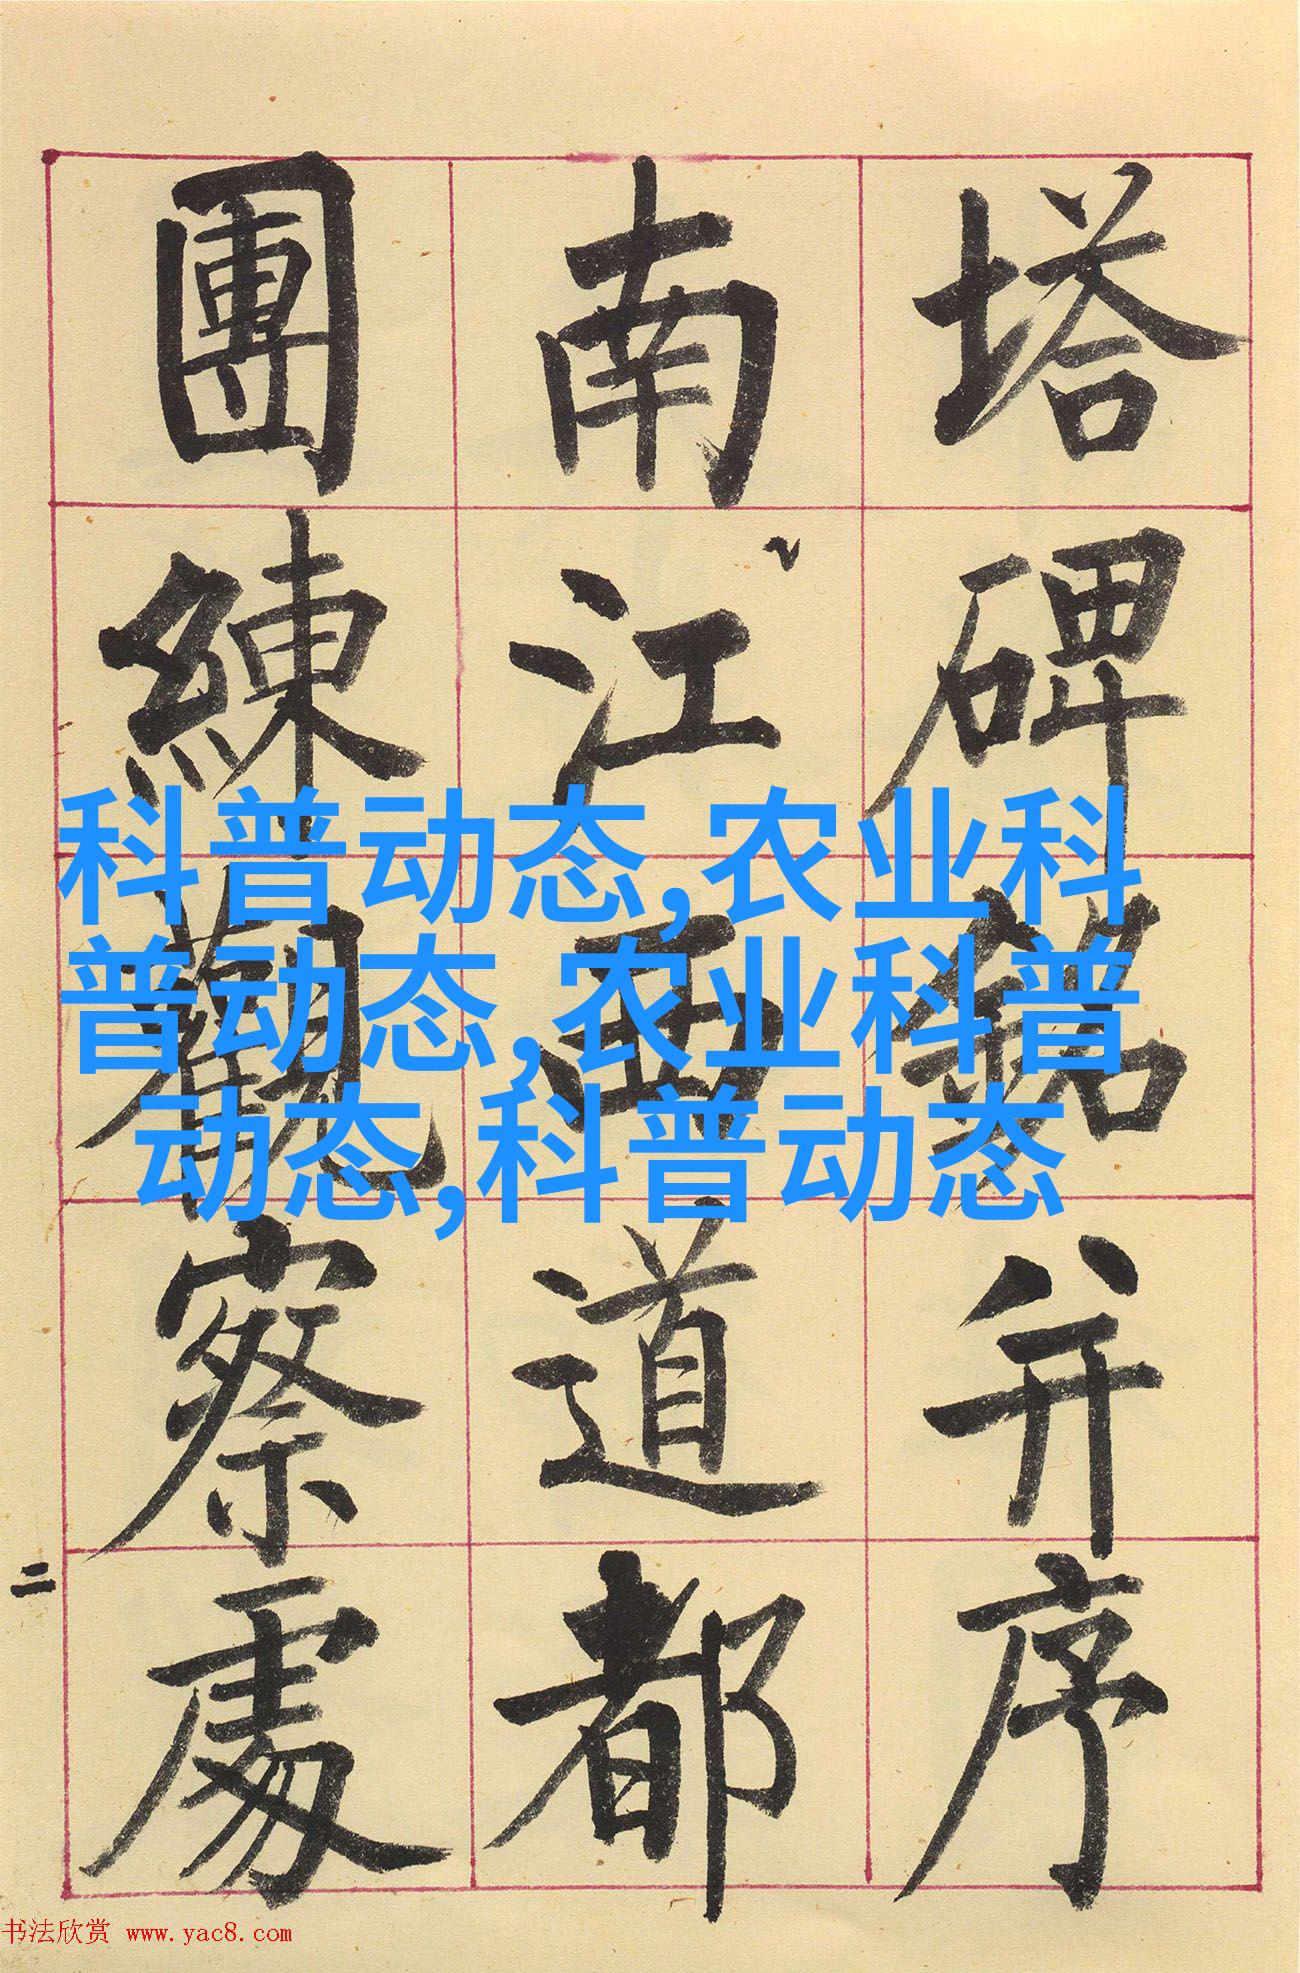 塔碑銘并序
南江西道都
團練觀察處
二
科普动态,农业科
普动态,农业科普
动态,科普动态
书法欣赏 www.yac8.com